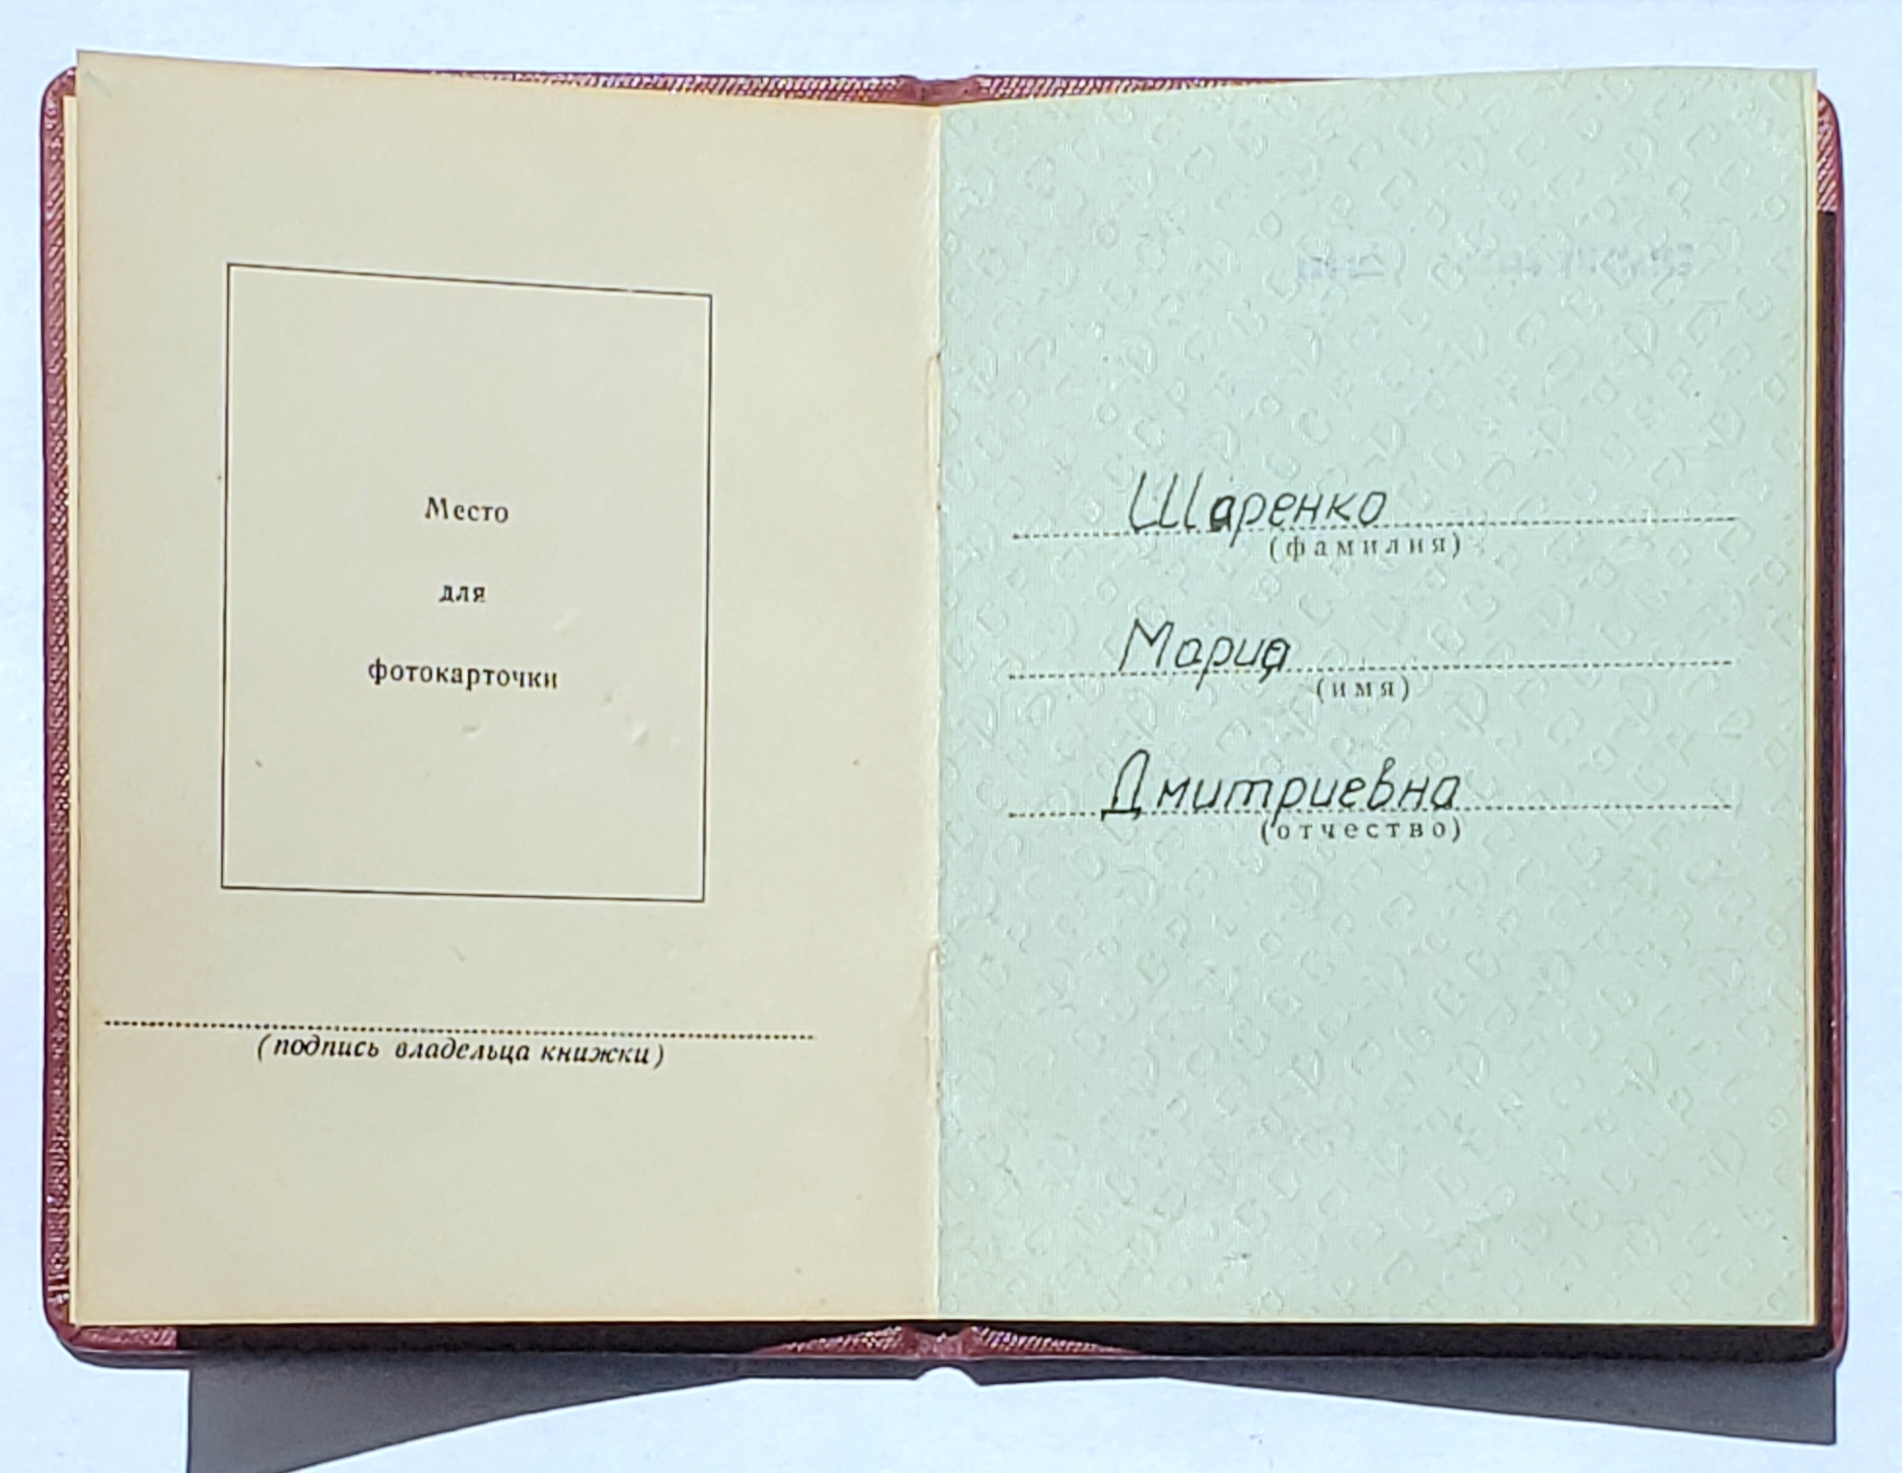 Место
для
фотокарточки
(подпись владельца книжки)
Шаренко
(фамилия)
Мария
(имя)
Дмитриевна
(отчество)